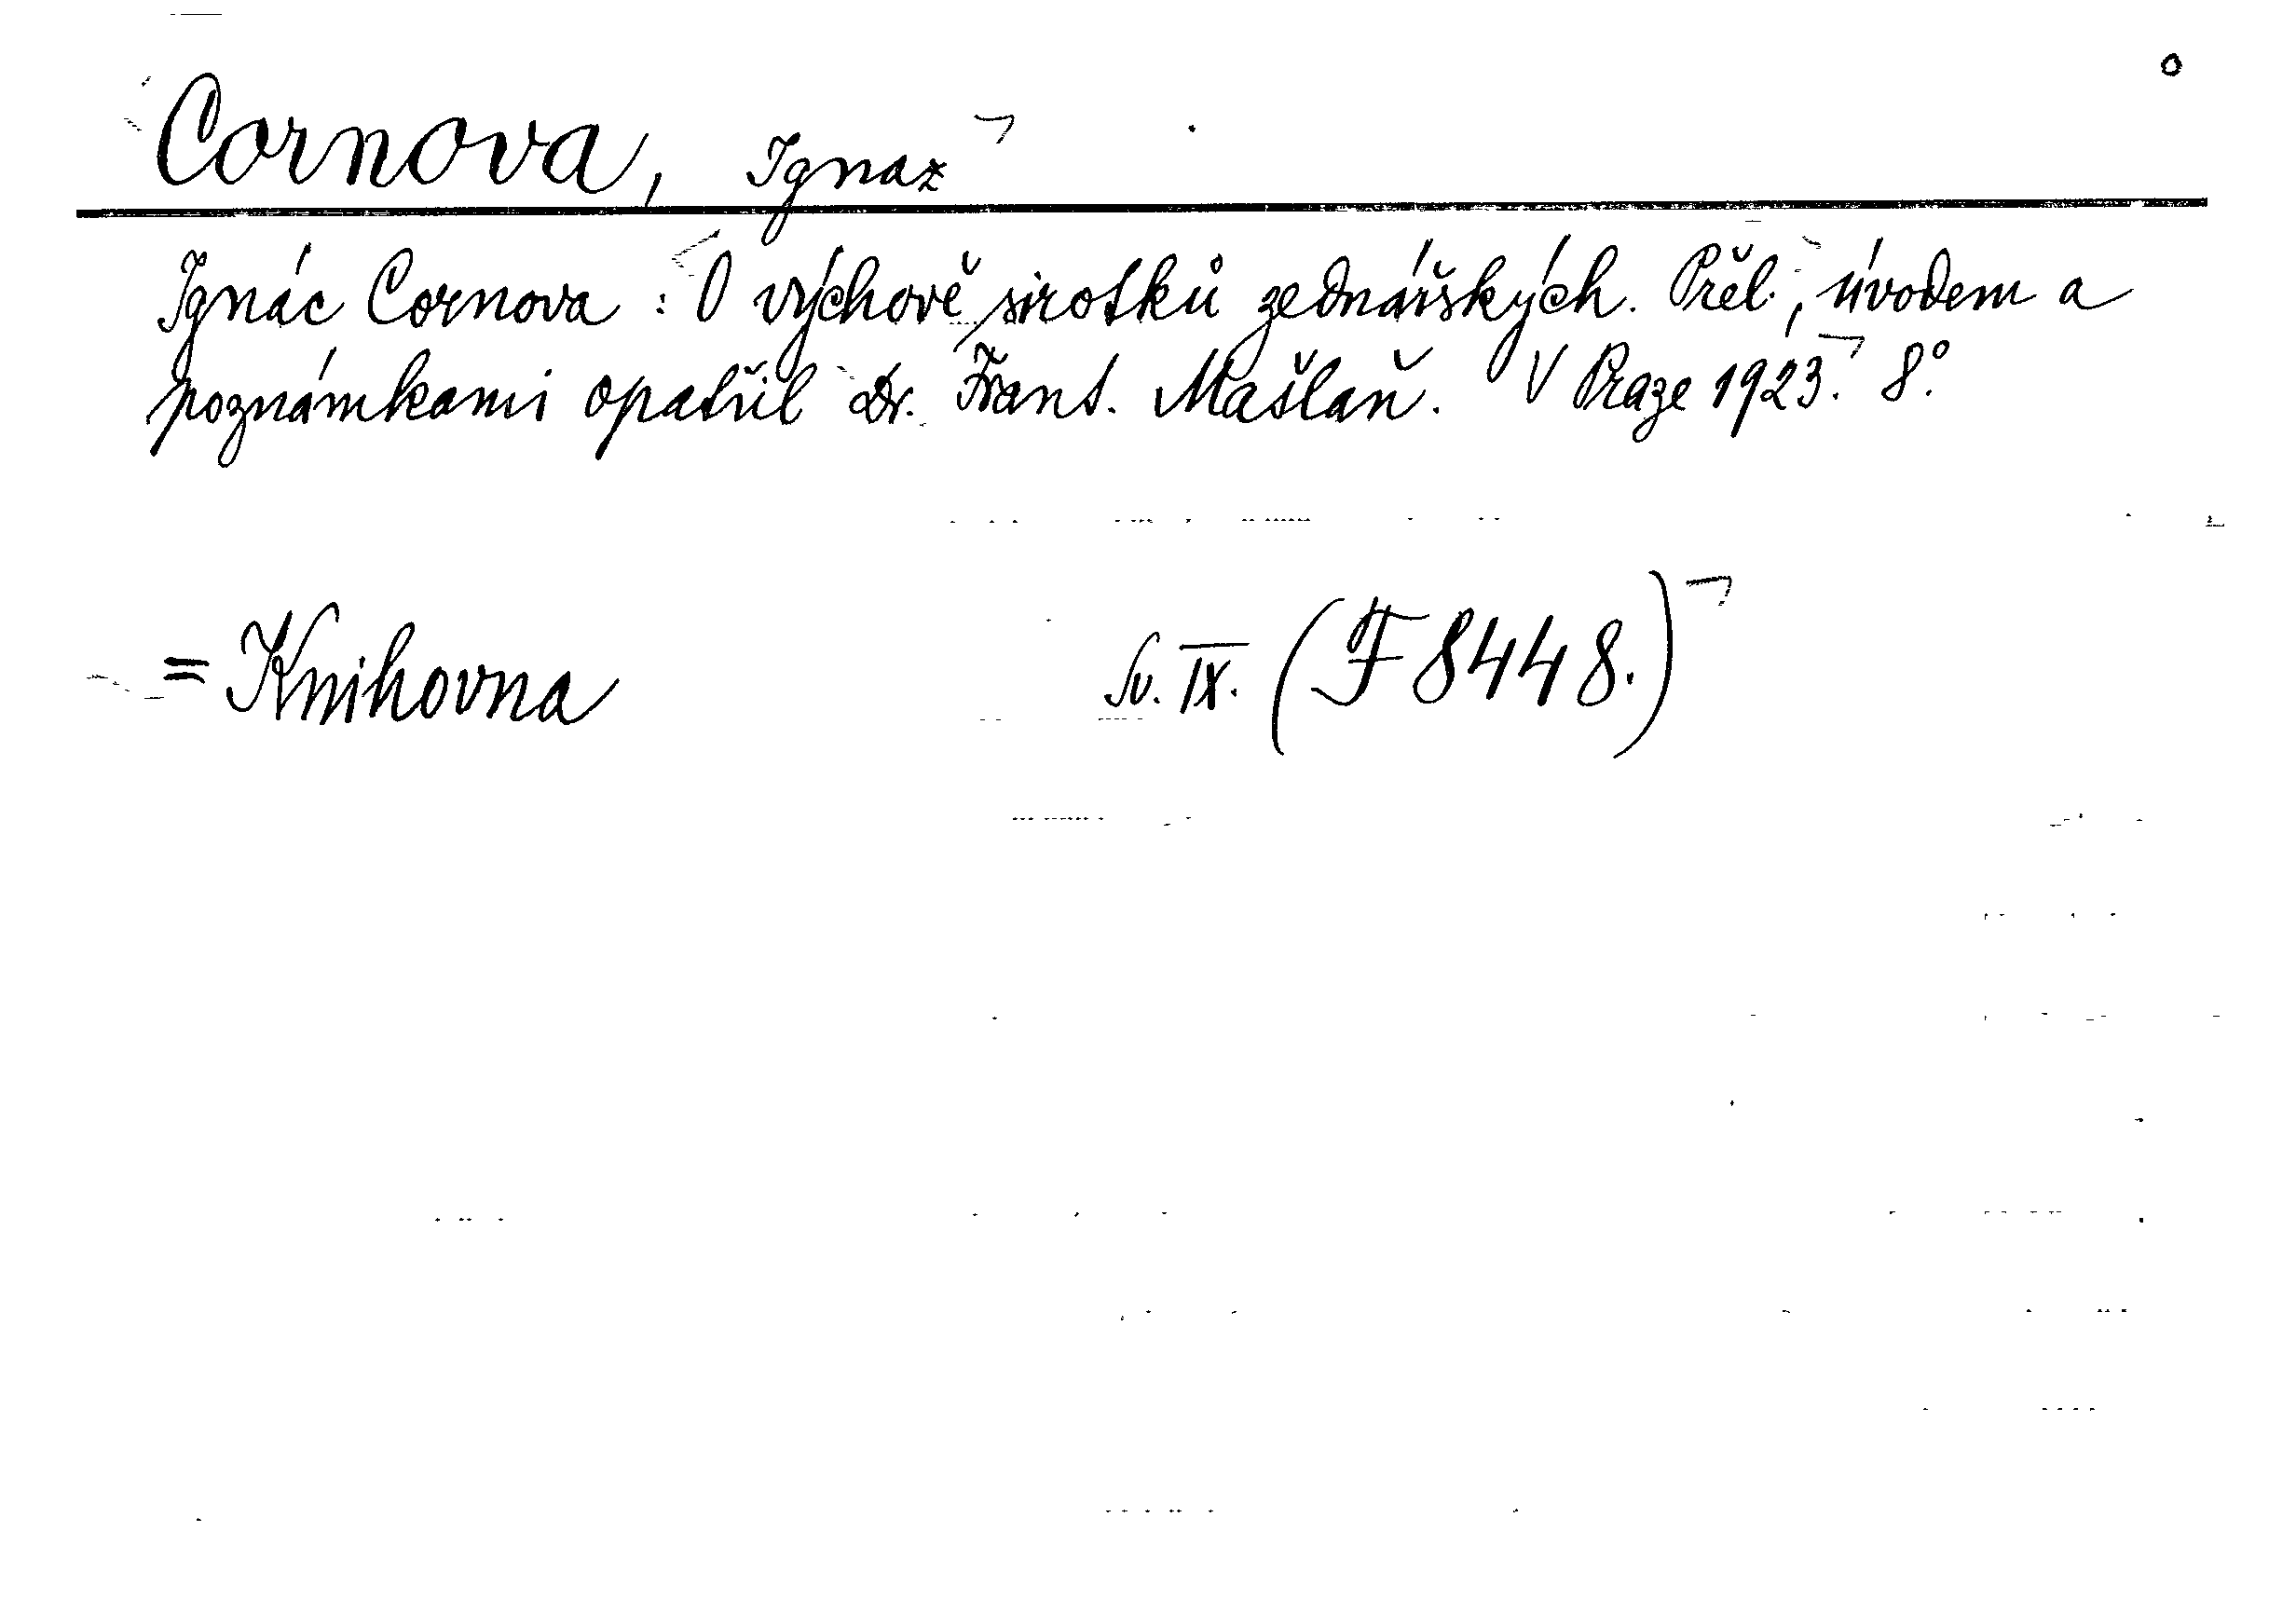 Cornova, Ignaz
Ignác Cornova : O výchově sirotků zednářských. Přel., úvodem a
poznámkami opatřil Dr. Frant. Mašlaň. V Praze 1923. 8.°
= Knihovna Sv. IX. (F 8448.)